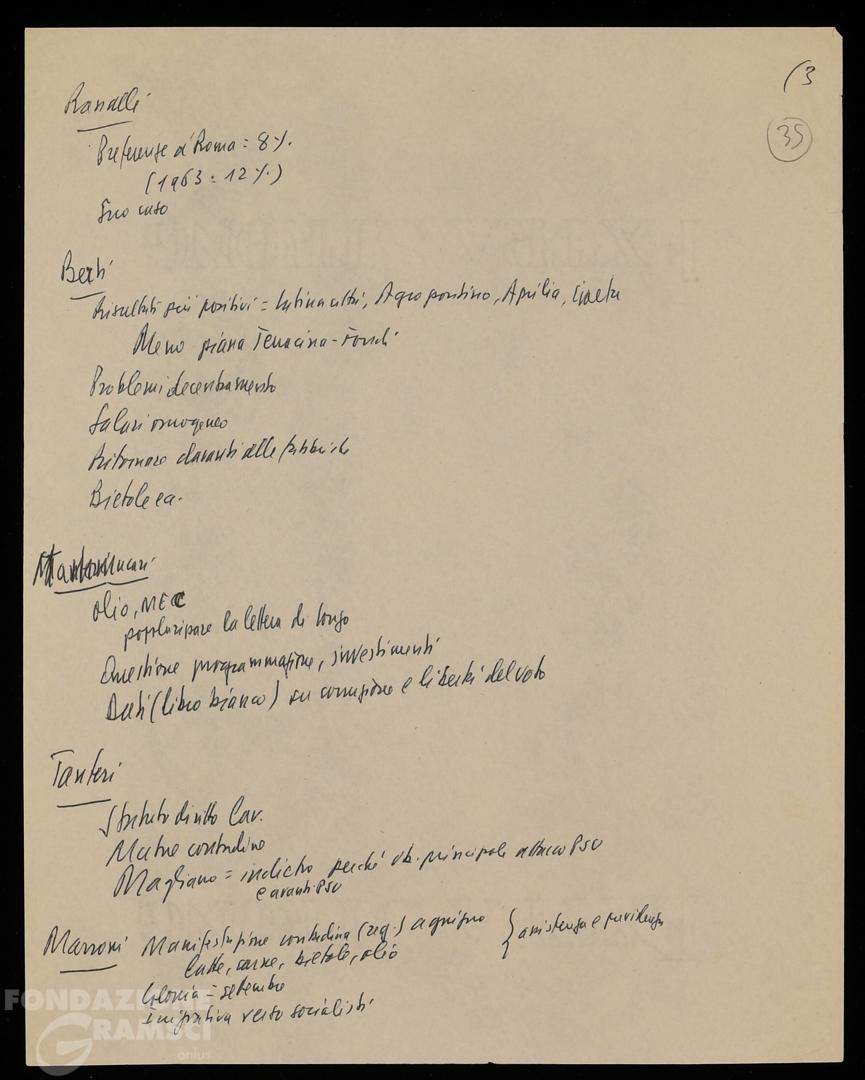 (3
35
Ranalli
Preferenze di Roma = 8%.
(1963 = 12%)
Suo caso
Berti
Risultati più positivi = Latina città, Agro pontino, Aprilia, Gaeta
Meno piana Terracina - Fondi
Problemi decentramento
Salari omogeneo
Ritornare davanti alle fabbriche
Bietole ea.
olio, MEC
popolarizzare la lettera di Longo
Questione programmazione, investimenti
Dati (libro bianco) su corruzione e libertà del voto
Tanteri
Statuto diritto Lav.
Mutue contadine
Magliano = indietro perché ob. principale attacco PSU
e avanti PSU
Marroni Manifestazione contadina (reg.) a giugno } assistenza e previdenza
latte, carne, bietole, olio
Colonia = settembre
Iniziativa verso socialisti
FONDAZIONE
GRAMSCI
onlus